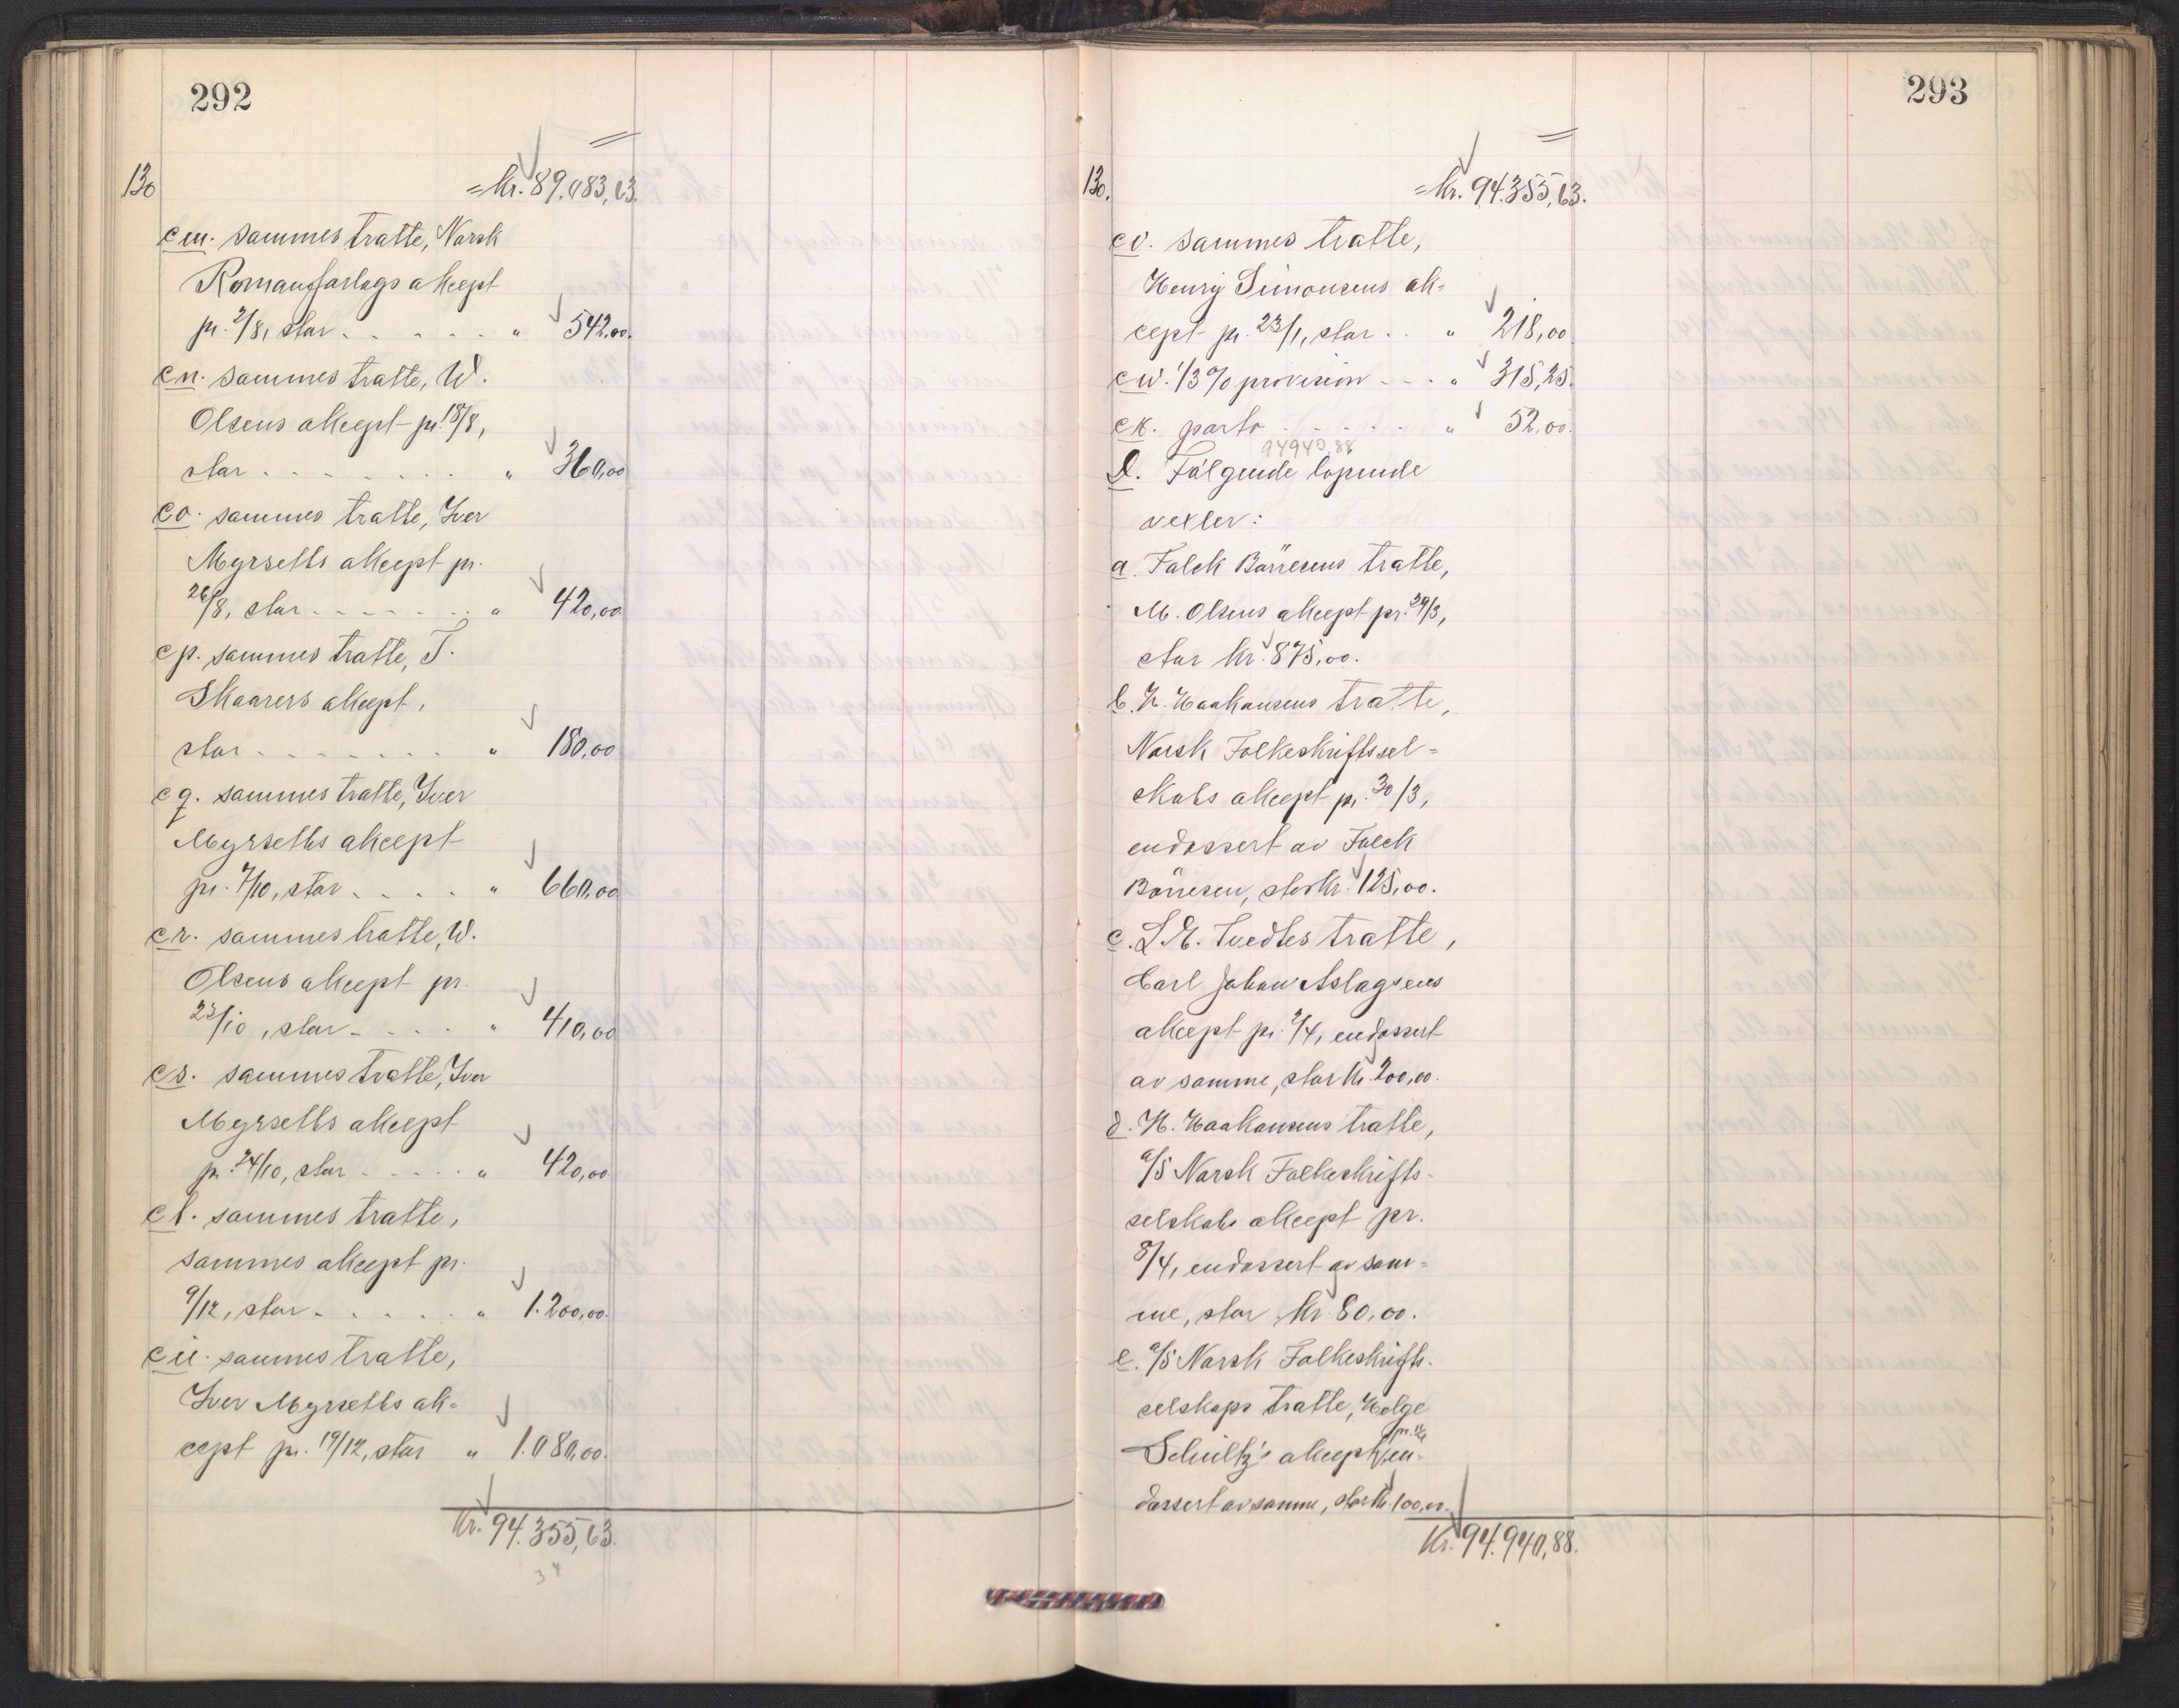 292
130
= kr. 89.083,63.
cm. sammes tratte, Norsk
Romanforlags akcept
pr. 2/8, stor . . . . . " 542,00.
cn. sammes tratte, W.
Olsens akcept pr. 18/8,
stor . . . . . . . " 360,00
co. sammes tratte, Iver
Myrseths akcept pr.
26/8, stor . . . . . . . " 420,00
cp. sammes tratte, T.
Skaarers akcept,
stor . . . . . . . " 180,00
cq. sammes tratte, Iver
Myrseths akcept
pr. 7/10, stor . . . . " 660,00
cr. sammes tratte, W.
Olsens akcept pr.
23/10, stor . . . . " 410,00
cs. sammes tratte, Iver
Myrseths akcept
pr. 24/10, stor . . . . . " 420,00
ct. sammes tratte,
sammes akcept pr.
9/12, stor . . . . . " 1.200,00.
cu. sammes tratte,
Iver Myrseths ak=
cept pr. 19/12, stor " 1.080,00.
Kr. 94.355,63.
34
293
130.
= kr. 94.355,63.
cv. sammes tratte,
Henry Simonsens ak=
cept pr. 23/1, stor . . " 218,00
cw. 1/3% provision . . . " 315,25.
cx. porto . . . . . " 52,00.
94940,88
D. Følgende løpende
vexler:
a. Falck Börresens tratte,
M. Olsens akcept pr. 29/3,
stor kr. 875,00.
b. H. Haakansens tratte,
Norsk Folkeskriftssel=
skabs akcept pr. 30/3,
endossert av Falck
Börresen, stor kr. 125,00.
c. L. E. Tvedtes tratte,
Carl Johan Aslagsens
akcept pr. 2/4, endossert
av samme, stor kr. 200,00.
d. H. Haakansens tratte,
a/s Norsk Folkeskrifts-
selskabs akcept pr.
8/4, endossert av sam=
me, stor kr. 80,00.
e. a/s Norsk Folkeskrifts-
selskaps tratte, Helge
Schultz's akcept pr. en-
dossert av samme, stor kr. 100,00.
Kr. 94.940,88.